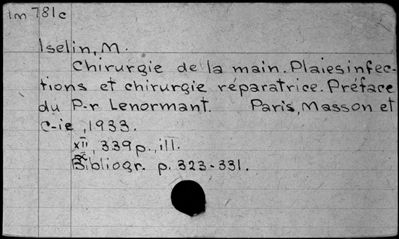 1m781c
Iselin, M.
Chirurgie de la main. Plaies infec-
tions et chirurgie réparatrice. Préface
du P-r Lenormant. Paris, Masson et
C-ie, 1933.
XII, 339 p., ill.
Bibliogr. p. 323-331.